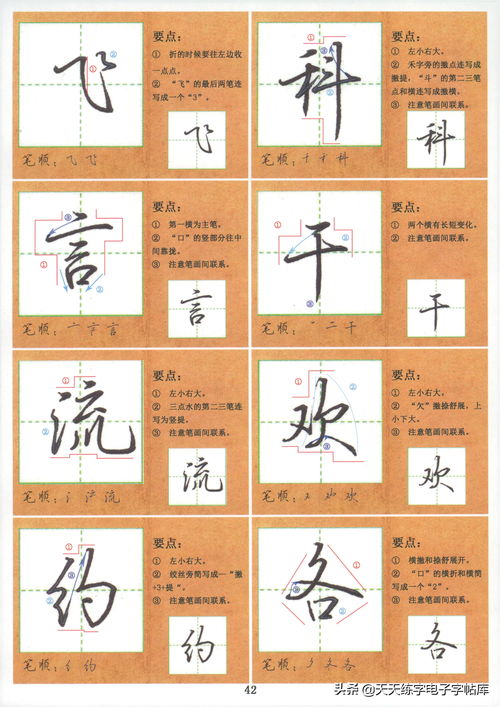 飞
①
②
要点：
① 折的时候要往左边收
一点点。
② “飞”的最后两笔连
写成一个“3”。
飞
笔顺：飞 飞
科
①
②
③
要点：
① 左小右大。
② 禾字旁的撇点连写成
撇提，“斗”的第二三笔
点和横连写成撇横。
③ 注意笔画间联系。
科
笔顺：科
言
①
②
③
要点：
① 第一横为主笔。
② “口”的竖部分往中
间靠拢。
③ 注意笔画间联系。
言
笔顺：亠 言 言
干
①
②
③
要点：
① 两个横有长短变化。
② 注意笔画间联系。
干
笔顺：一 二 干
流
①
②
要点：
① 左小右大。
② 三点水的第二三笔连
写为竖提。
③ 注意笔画间联系。
流
笔顺：氵 流 流
欢
①
②
③
要点：
① 左小右大。
② “欠”撇捺舒展，上
小下大。
③ 注意笔画间联系。
欢
笔顺：又 欢 欢
约
①
②
③
要点：
① 左小右大。
② 绞丝旁简写成一“撇
+3+提”。
③ 注意笔画间联系。
约
笔顺：纟 约
各
①
②
③
要点：
① 横撇和捺舒展开。
② “口”的横折和横简
写成一个“2”。
③ 注意笔画间联系。
各
笔顺：夕 冬 各
42
头条 @天天练字电子字帖库